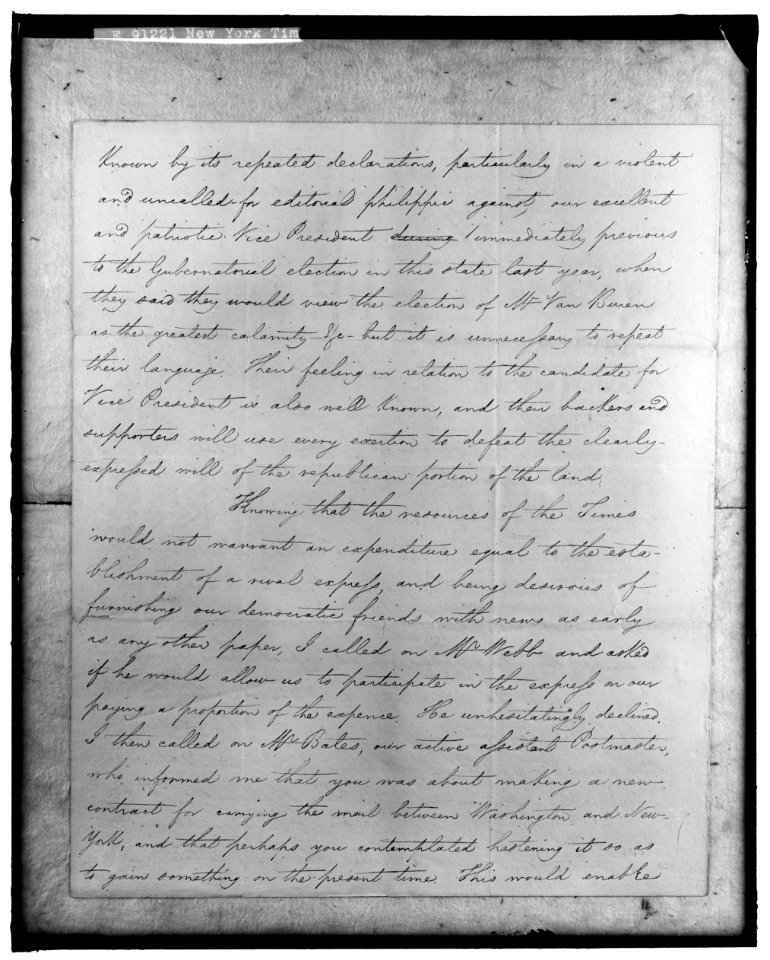 E 91221 New York Tim
Known by its repeated declarations, particularly in a violent
and uncalled-for editorial philippic against, our excellent
and patriotic Vice President during immediately previous
to the Gubernatorial election in this state last year, when
they said they would view the election of Mr Van Buren
as the greatest calamity &c - but it is unnecessary to repeat
their language. Their feeling in relation to the candidate for
Vice President is also well Known, and their backers and
supporters will use every exertion to defeat the clearly-
expressed will of the republican portion of the land.
Knowing that the resources of the Times
would not warrant an expenditure equal to the esta-
blishment of a rival express, and being desirous of
furnishing our democratic friends with news as early
as any other paper, I called on Mr Webb and asked
if he would allow us to participate in the express on our
paying a proportion of the expence. He unhesitatingly declined.
I then called on Mr Bates, our active assistant Postmaster,
who informed me that you was about making a new
contract for carrying the mail between Washington and New-
York, and that perhaps you contemplated hastening it so as
to gain something on the present time. This would enable